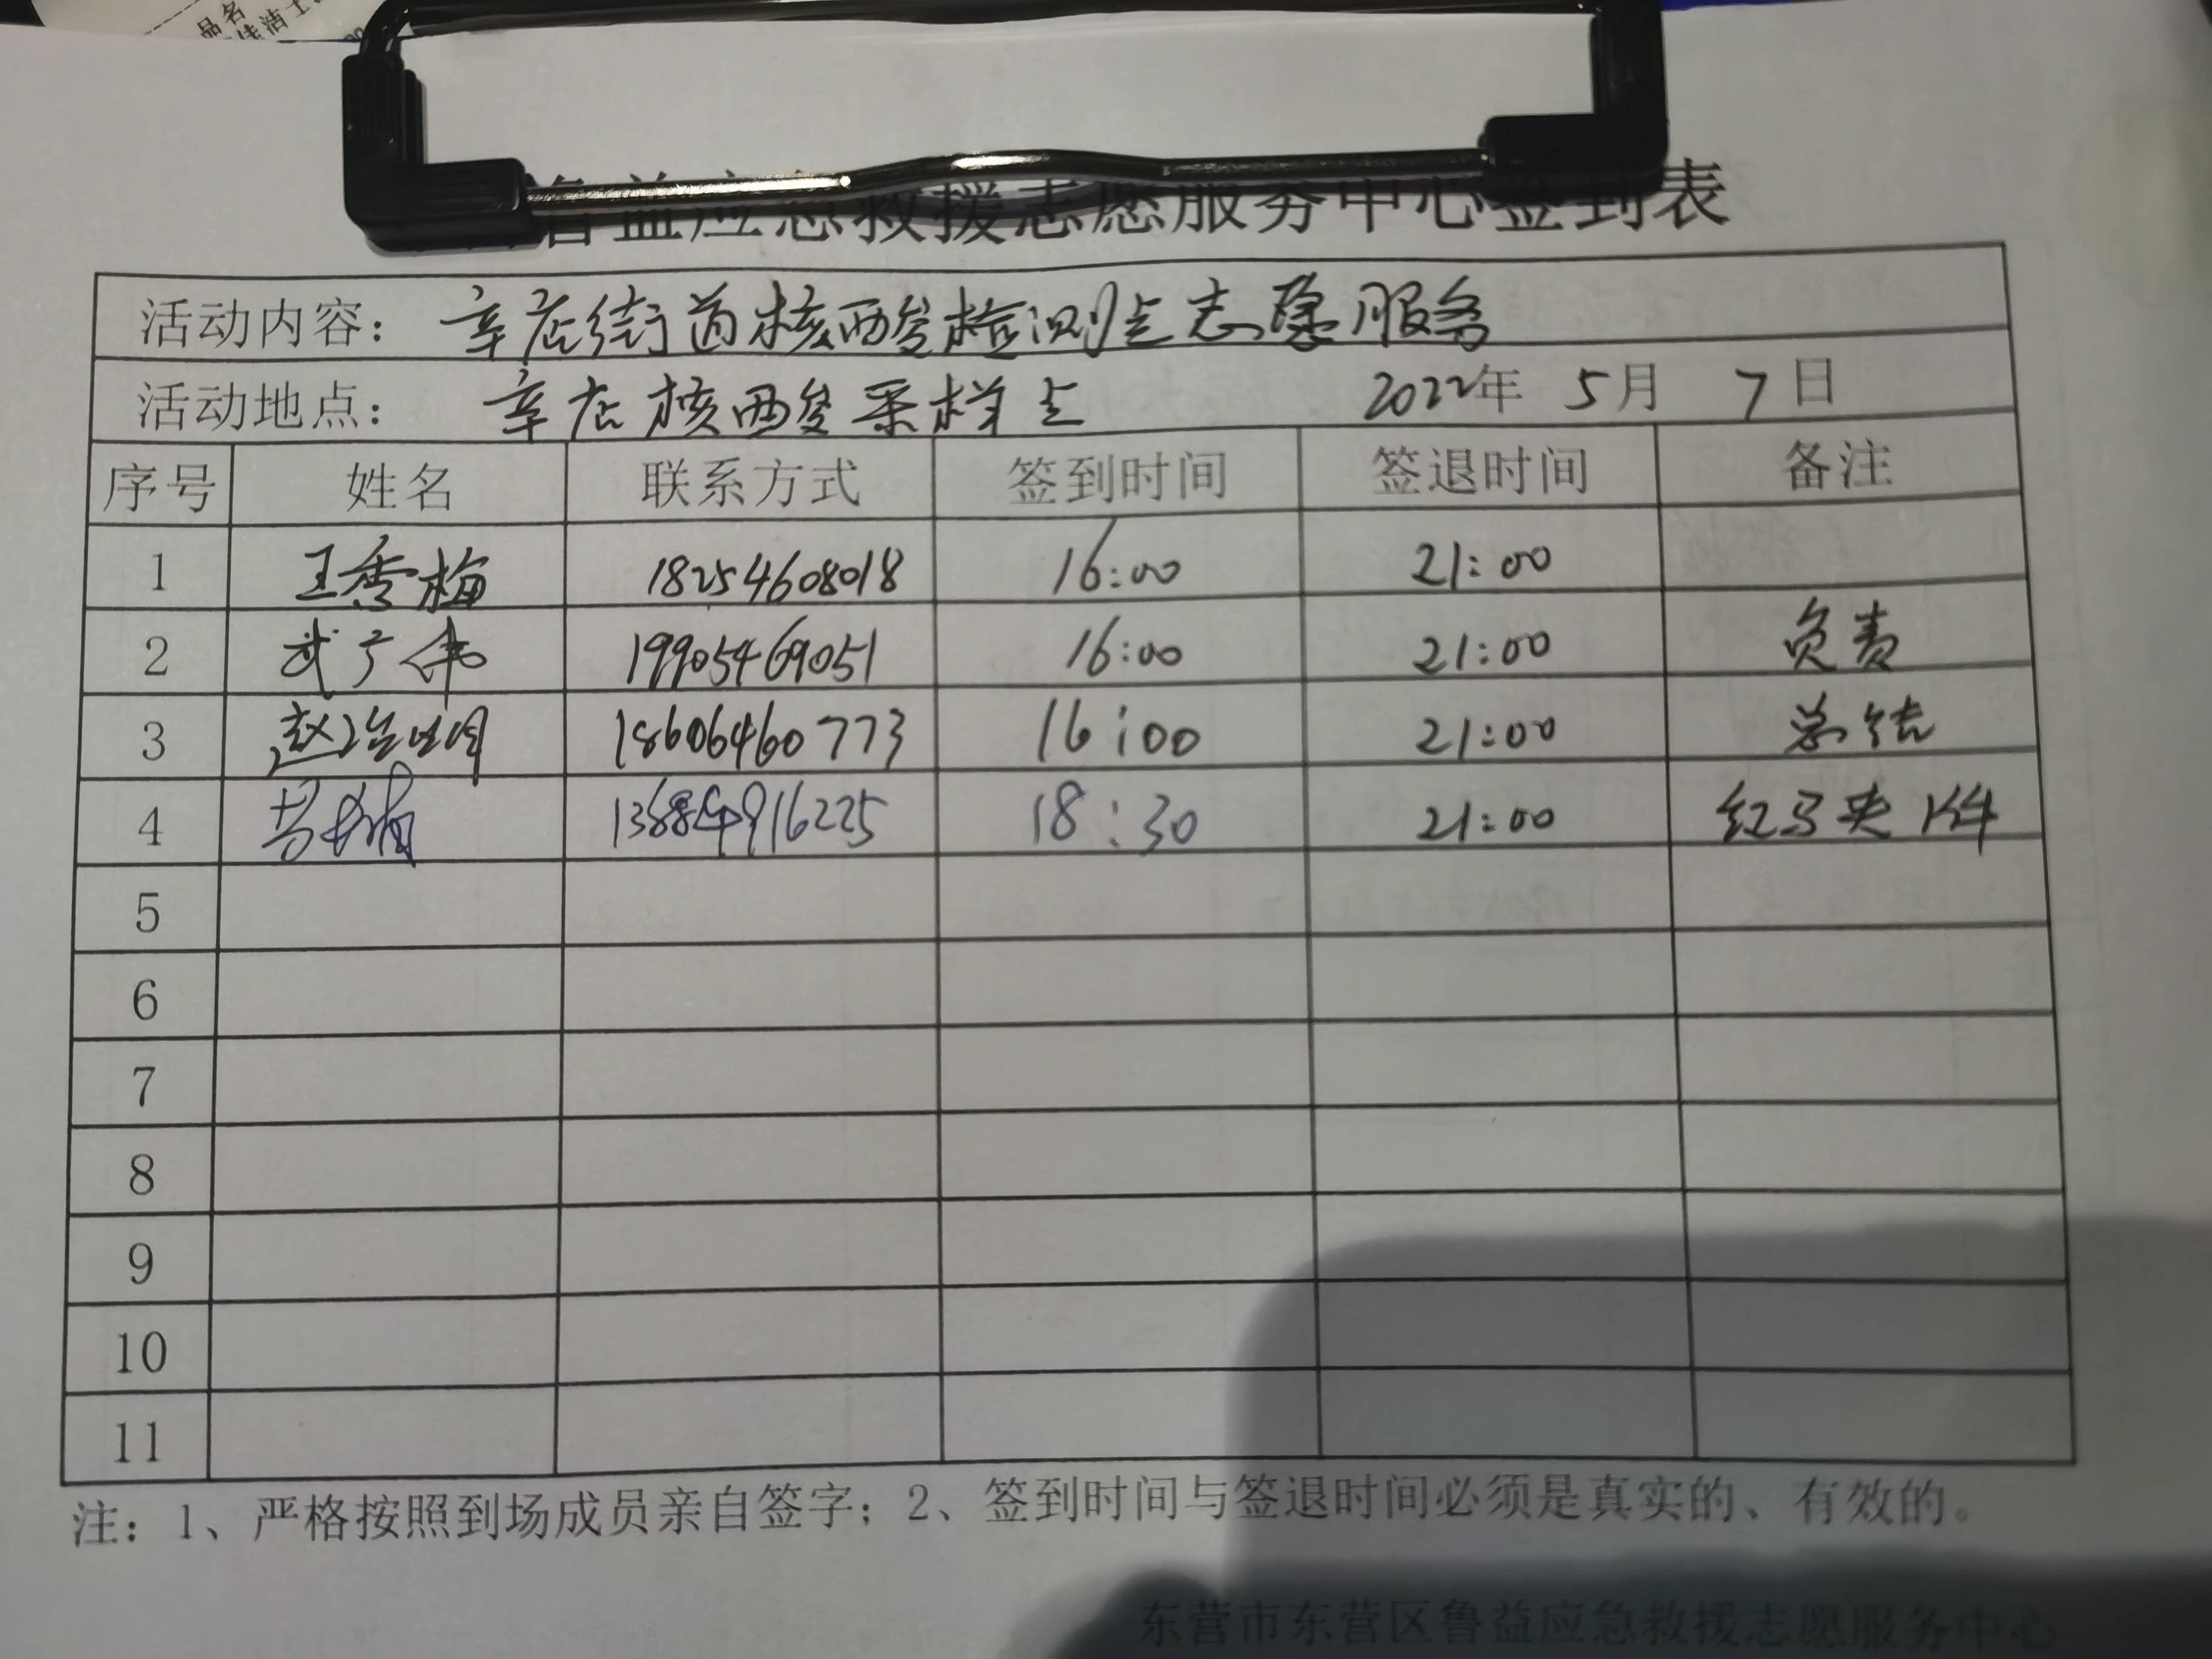 品名
佳洁士
鲁益应急救援志愿服务中心签到表
活动内容： 辛店街道核酸检测点志愿服务
活动地点： 辛店核酸采样点 2022年 5月 7日
序号 姓名 联系方式 签到时间 签退时间 备注
1 王秀梅 18254608018 16:00 21:00
2 武广伟 19905469051 16:00 21:00 负责
3 赵 18606460773 16:00 21:00 总结
4 21:00 18:30 红马夹1件
5
6
7
8
9
10
11
注：1、严格按照到场成员亲自签字；2、签到时间与签退时间必须是真实的、有效的。
东营市东营区鲁益应急救援志愿服务中心